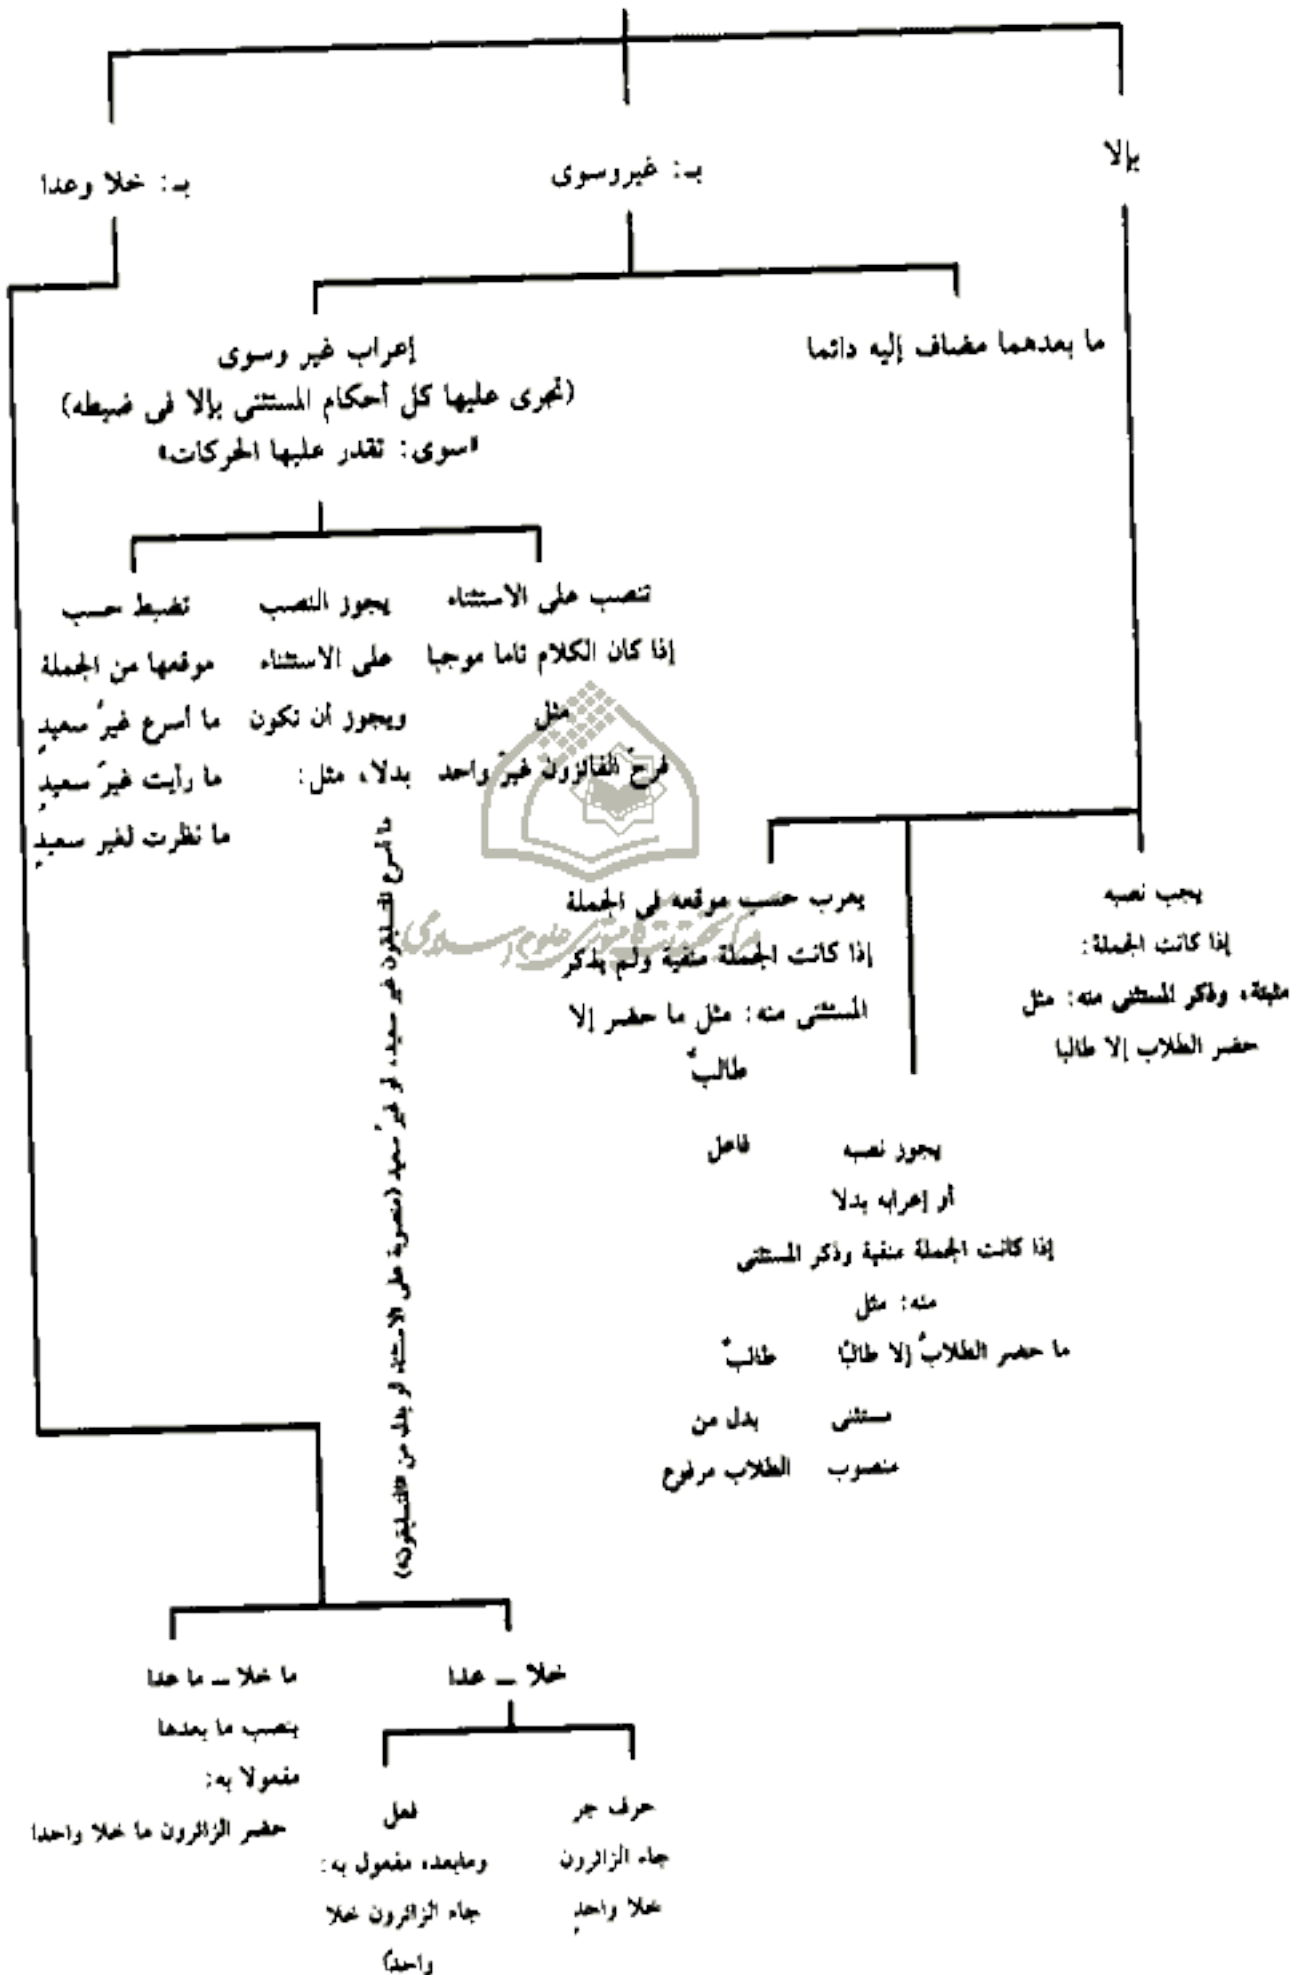 بإلا
بـ: غير وسوى
بـ: خلا وعدا
ما بعدهما مضاف إليه دائما
إعراب غير وسوى
(تجرى عليها كل أحكام المستثنى بإلا فى ضبطه)
«سوى: تقدر عليها الحركات»
تنصب على الاستثناء
إذا كان الكلام تاما موجبا
مثل
فرح الفائزون غيرَ واحد
يجوز النصب
على الاستثناء
ويجوز أن تكون
بدلا، مثل:
ما أسرع المتسابقون غير سعيد، أو غيرُ سعيد (منصوبة على الاستثناء أو بدل من «المتسابقون»)
تضبط حسب
موقعها من الجملة
ما أسرع غيرُ سعيدٍ
ما رأيت غيرَ سعيدٍ
ما نظرت لغير سعيدٍ
يجب نصبه
إذا كانت الجملة:
مثبتة، وذكر المستثنى منه: مثل
حضر الطلاب إلا طالبا
يعرب حسب موقعه فى الجملة
إذا كانت الجملة منفية ولم يذكر
المستثنى منه: مثل ما حضر إلا
طالبٌ
فاعل
يجوز نصبه
أو إعرابه بدلا
إذا كانت الجملة منفية وذكر المستثنى
منه: مثل
ما حضر الطلابُ إلا طالبًا طالبٌ
مستثنى بدل من
منصوب الطلاب مرفوع
خلا ــ عدا
حرف جر
جاء الزائرون
خلا واحدٍ
فعل
ومابعده مفعول به:
جاء الزائرون خلا
واحدًا
ما خلا ــ ما عدا
ينصب ما بعدها
مفعولا به:
حضر الزائرون ما خلا واحدا